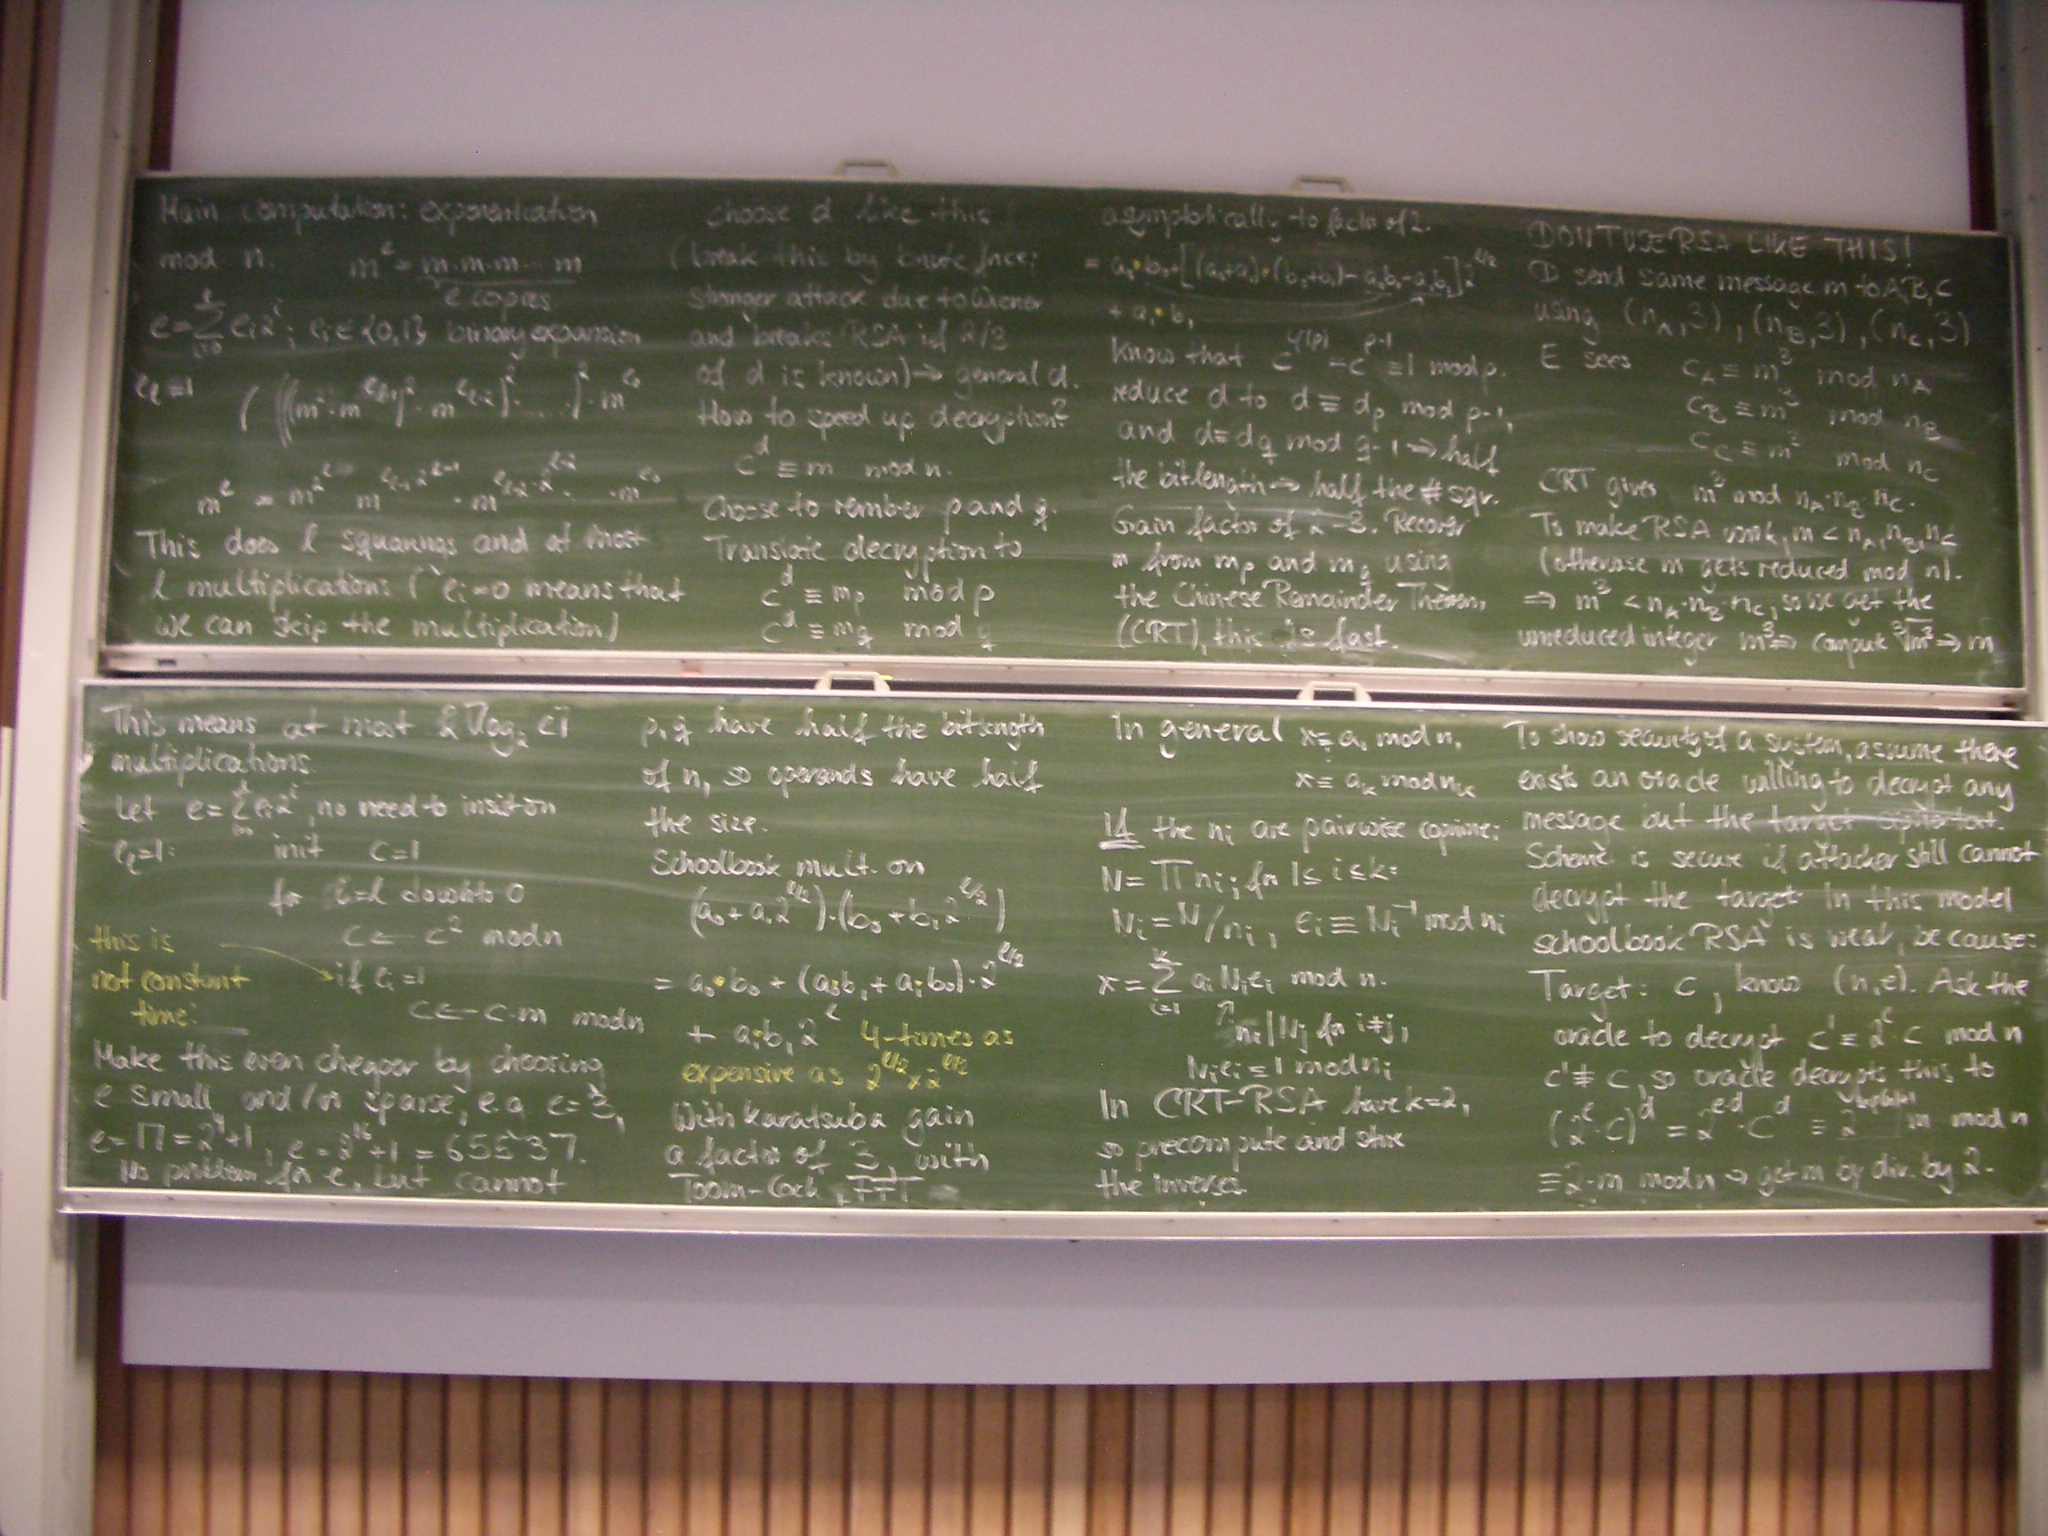 Main computation: exponentiation
mod n. m^e = m·m·m··· m
e copies
e = ∑_{i=0}^{l} e_i 2^i ; e_i ∈ {0,1} binary expansion
e_l = 1 ( (((m^2 · m^{e_{l-1}})^2 · m^{e_{l-2}})^2 · ....)^2 · m^{e_0}
m^e = m^{2^l} · m^{e_{l-1} 2^{l-1}} · m^{e_{l-2} · 2^{l-2}} · ... · m^{e_0}
This does l squarings and at most
l multiplications (e_i = 0 means that
we can skip the multiplication)
This means at most 2⌈log_2 e⌉
multiplications.
Let e = ∑_{i=0}^{l} e_i 2^i, no need to insist on
e_l = 1: init c = 1
for i = l downto 0
c ← c^2 mod n
this is
not constant if e_i = 1
time: c ← c·m mod n
Make this even cheaper by choosing
e small, and/or sparse, e.g. e = 3,
e = 17 = 2^4+1, e = 2^16+1 = 65537.
No problem for e, but cannot
choose d like this
(break this by brute force;
stronger attack due to Wiener
and breaks RSA if 2/3
of d is known) → general d.
How to speed up decryption?
c^d ≡ m mod n.
Choose to rember p and q.
Translate decryption to
c^d ≡ m_p mod p
c^d ≡ m_q mod q
p, q have half the bitlength
of n, so operands have half
the size.
Schoolbook mult. on
(a_0 + a_1 2^{l/2}) · (b_0 + b_1 2^{l/2})
= a_0·b_0 + (a_0·b_1 + a_1·b_0) · 2^{l/2}
+ a_1·b_1 2^l 4-times as
expensive as 2^{l/2} × 2^{l/2}
With Karatsuba gain
a factor of 3, with
Toom-Cook, FFT
asymptotically to factor of 2.
= a_0·b_0 + [(a_0+a_1)·(b_0+b_1) - a_0b_0 - a_1b_1] 2^{l/2}
+ a_1·b_1
Know that c^{φ(p)} = c^{p-1} ≡ 1 mod p.
reduce d to d ≡ d_p mod p-1,
and d ≡ d_q mod q-1 → half
the bitlength → half the # sqr.
Gain factor of 2-3. Recover
m from m_p and m_q using
the Chinese Remainder Theorem,
(CRT), this is fast.
In general x ≡ a_1 mod n_1
x ≡ a_k mod n_k
if the n_i are pairwise coprime:
N = ∏ n_i; for 1 ≤ i ≤ k:
N_i = N/n_i, e_i ≡ N_i^{-1} mod n_i
x = ∑_{i=1}^{k} a_i N_i e_i mod n.
n_i | N_j for i≠j,
N_i e_i ≡ 1 mod n_i
In CRT-RSA have k=2,
so precompute and store
the inverses.
DON'T USE RSA LIKE THIS!
D send same message m to A,B,C
using (n_A,3), (n_B,3), (n_C,3)
E sees c_A ≡ m^3 mod n_A
c_B ≡ m^3 mod n_B
c_C ≡ m^3 mod n_C
CRT gives m^3 mod n_A·n_B·n_C.
To make RSA work, m < n_A, n_B, n_C
(otherwise m gets reduced mod n).
⇒ m^3 < n_A·n_B·n_C, so we get the
unreduced integer m^3 ⇒ compute ∛m^3 → m
To show security of a system, assume there
exists an oracle willing to decrypt any
message but the target ciphertext.
Scheme is secure if attacker still cannot
decrypt the target. In this model
schoolbook RSA is weak, because:
Target: c, know (n,e). Ask the
oracle to decrypt c' ≡ 2^e · c mod n
c' ≠ c, so oracle decrypts this to
(2^e · c)^d = 2^{ed} · c^d ≡ 2 m mod n
≡ 2·m mod n → get m by div. by 2.